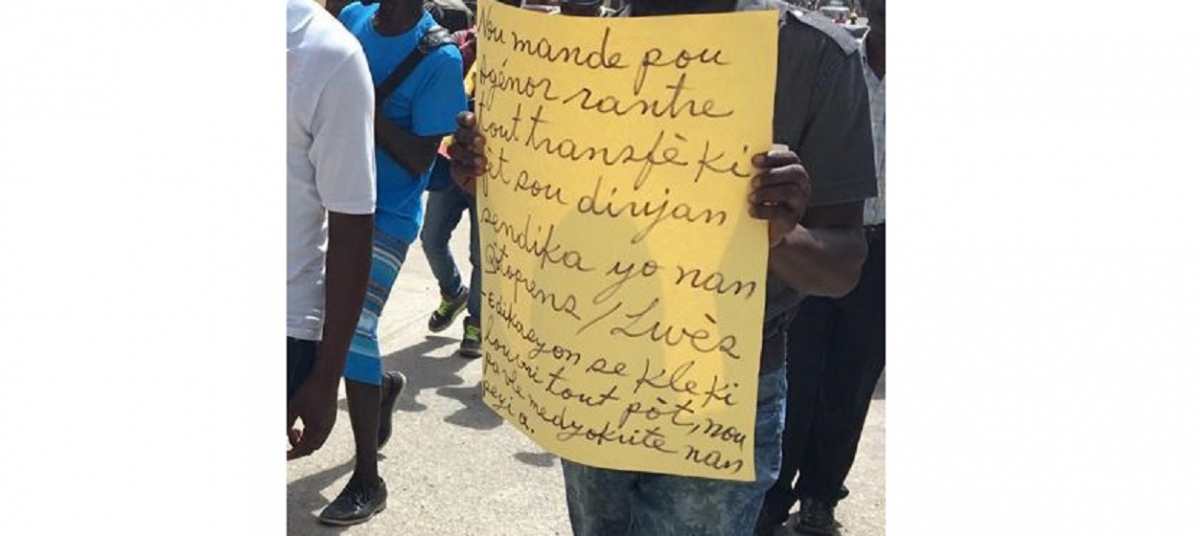 Nou mande pou
Agénor rantre
tout transfè ki
fèt sou dirijan
sendika yo nan
Potopens / Lwès
- Edikasyon se kle ki
louvri tout pòt, nou
pa vle medyokrite nan
peyi a.